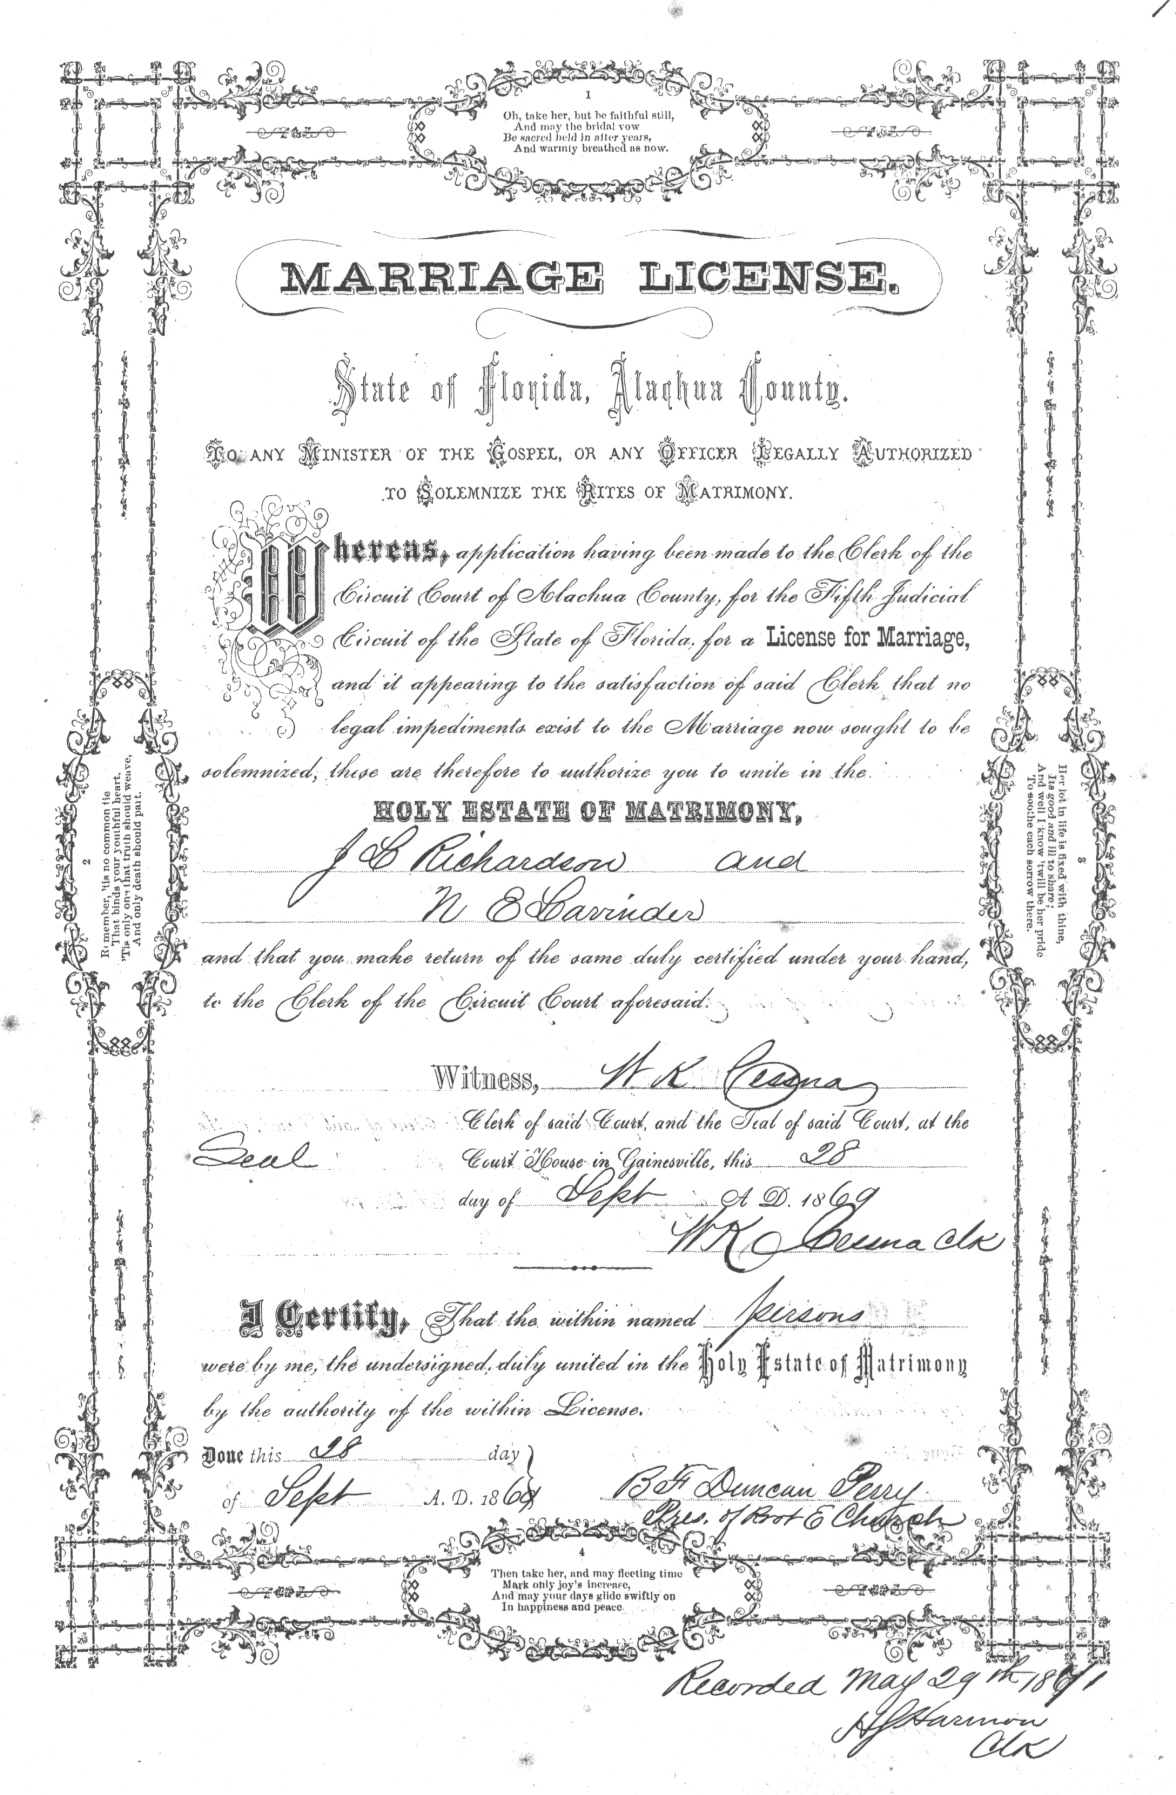 1
Oh, take her, but be faithful still,
And may the bridal vow
Be sacred held in after years,
And warmly breathed as now.
MARRIAGE LICENSE.
State of Florida, Alachua County.
TO ANY MINISTER OF THE GOSPEL, OR ANY OFFICER LEGALLY AUTHORIZED
TO SOLEMNIZE THE RITES OF MATRIMONY.
Whereas, application having been made to the Clerk of the
Circuit Court of Alachua County, for the Fifth Judicial
Circuit of the State of Florida, for a License for Marriage,
and it appearing to the satisfaction of said Clerk that no
legal impediments exist to the Marriage now sought to be
solemnized, these are therefore to authorize you to unite in the
HOLY ESTATE OF MATRIMONY,
J C Richardson and
N E Lavinder
and that you make return of the same duly certified under your hand,
to the Clerk of the Circuit Court aforesaid.
2
Remember, 'tis no common tie
That binds your youthful heart,
'Tis only one that truth should weave,
And only death should part.
3
Her lot in life is fixed with thine,
Its good and ill to share;
And well I know 'twill be her pride
To soothe each sorrow there.
Witness, W K Cessna
Clerk of said Court, and the Seal of said Court, at the
Seal Court House in Gainesville, this 28
day of Sept A. D. 1869
W K Cessna Clk
I Certify, That the within named persons
were by me, the undersigned, duly united in the Holy Estate of Matrimony
by the authority of the within License.
Done this 28 day
of Sept A. D. 1869
B F Duncan Perry
Pres. of Prot E Church
4
Then take her, and may fleeting time
Mark only joy's increase,
And may your days glide swiftly on
In happiness and peace.
Recorded May 29th 1871
Harmon
Clk